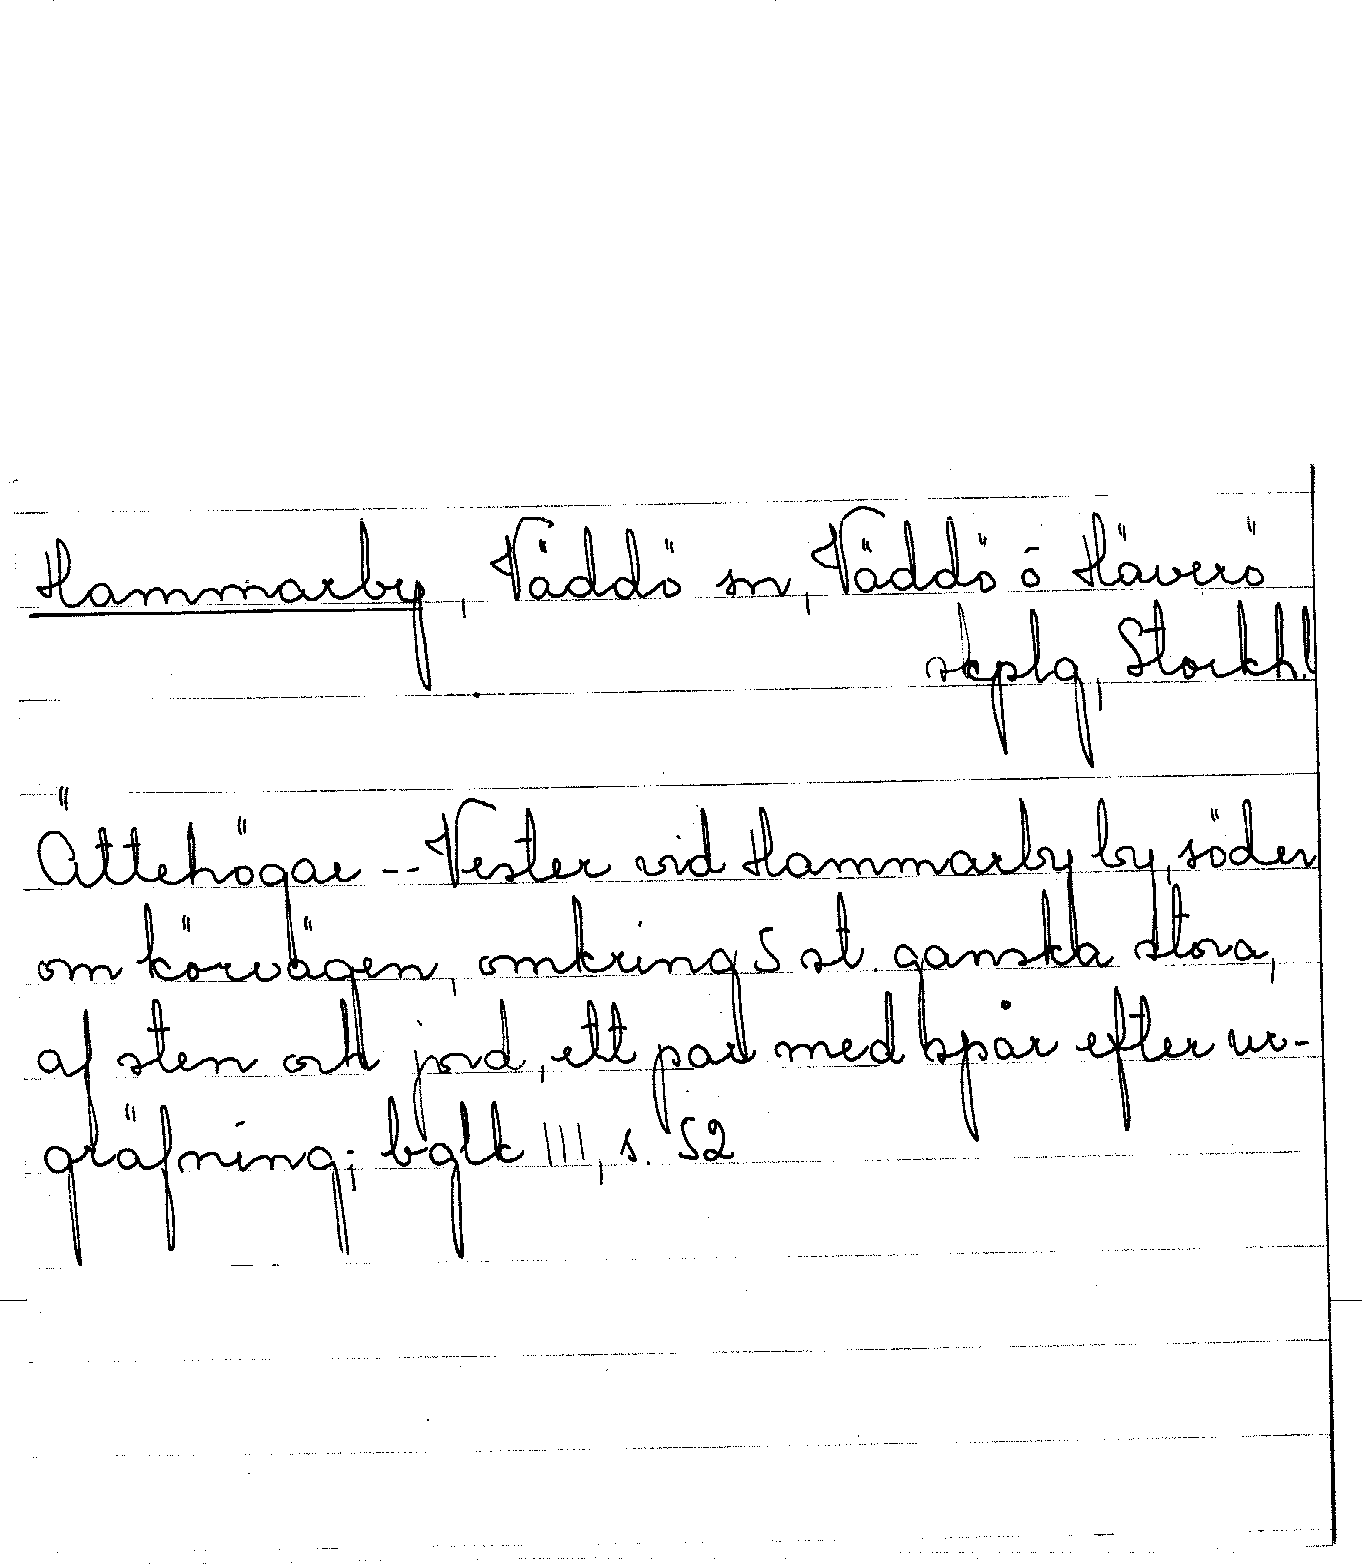 Hammarby, Väddö sn, Väddö o Häverö
skplg, Stockh.l
Ättehögar -- Vester vid Hammarby by, söder
om körvägen, omkring 5 st. ganska stora,
af sten och jord, ett par med spår efter ur-
gräfning; bglk III, s. 52